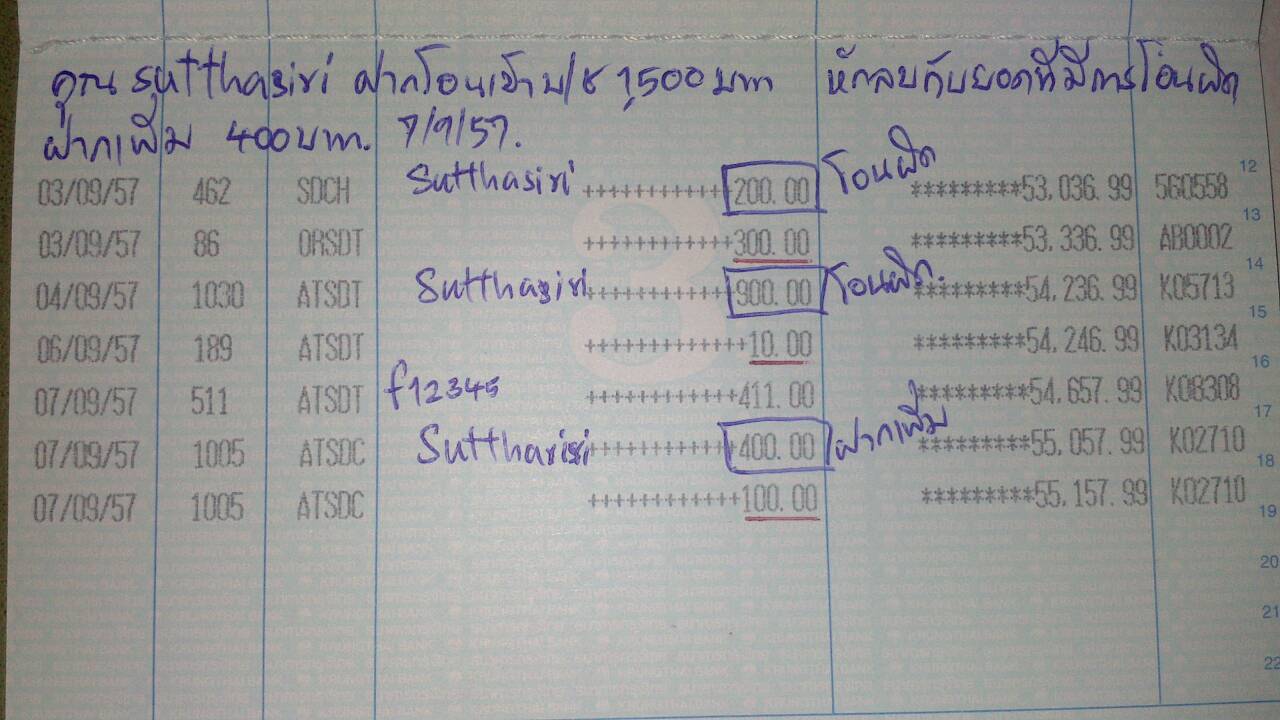 คุณ Sutthasiri ฝากโอนเข้า บ/ช 1,500 บาท หักลบกับยอดที่มีการโอนผิด
ฝากเพิ่ม 400 บาท. 7/9/57.
03/09/57 462 SDCH Sutthasiri +++++++++++200.00 โอนผิด *********53,036.99 560558 12
03/09/57 86 ORSDT +++++++++++300.00 *********53,336.99 AB0002 13
04/09/57 1030 ATSDT Sutthasiri +++++++++++900.00 โอนผิด. *********54,236.99 K05713 14
06/09/57 189 ATSDT ++++++++++++10.00 *********54,246.99 K03134 15
07/09/57 511 ATSDT f12345 +++++++++++411.00 *********54,657.99 K08308 16
07/09/57 1005 ATSDC Suttharisi +++++++++++400.00 ฝากเพิ่ม *********55,057.99 K02710 17
07/09/57 1005 ATSDC +++++++++++100.00 *********55,157.99 K02710 18
19
20
21
22
3